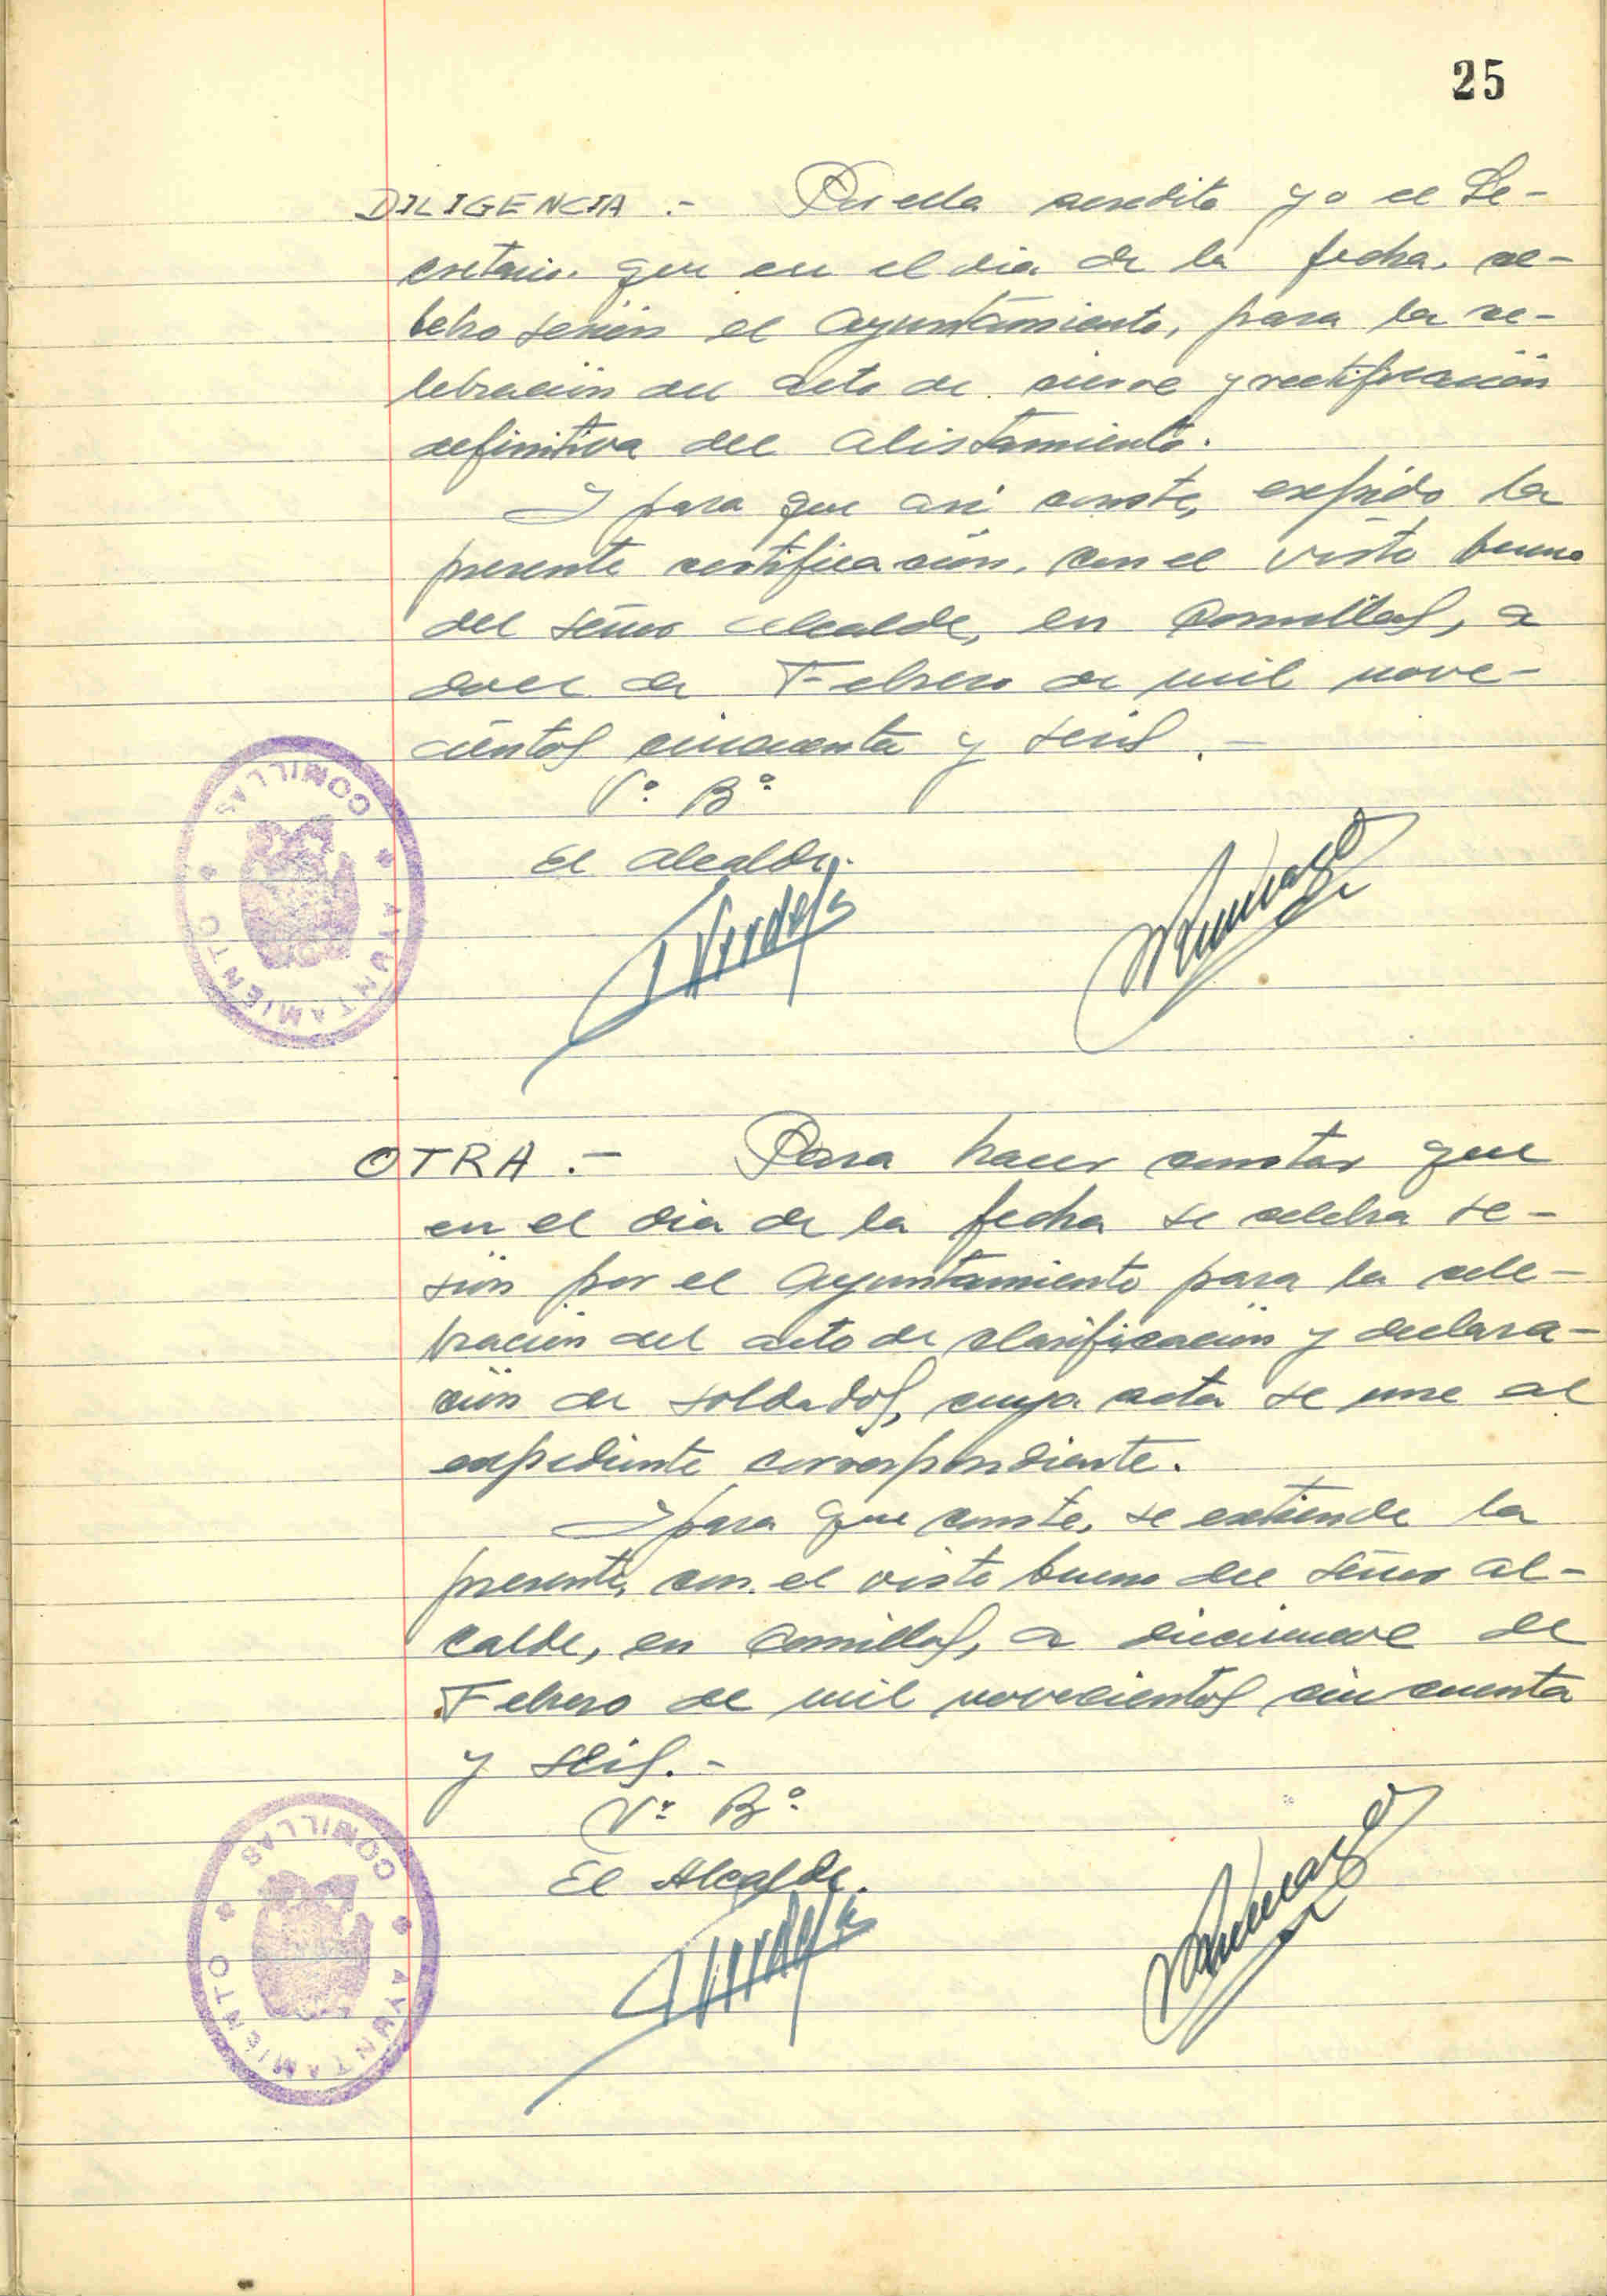 25
DILIGENCIA .- Por ella acredito yo el Se-
cretario, que en el dia de la fecha, ce-
lebro sesión el Ayuntamiento, para la ce-
lebración del acto de cierre y rectificación
definitiva del alistamiento.
Y para que asi conste, expido la
presente certificación, con el visto bueno
del señor Alcalde, en Comillas, a
doce de Febrero de mil nove-
cientos cincuenta y seis.-
Vº. Bº
El Alcalde.
COMILLAS
AYUNTAMIENTO
OTRA .- Para hacer constar que
en el dia de la fecha se celebra se-
sión por el Ayuntamiento para la cele-
bración del acto de clasificación y declara-
ción de soldados, cuya acta se une al
expediente correspondiente.
Y para que conste, se extiende la
presente, con el visto bueno del señor Al-
calde, en Comillas, a diecinueve de
Febrero de mil novecientos cincuenta
y seis.-
Vº Bº
El Alcalde.
COMILLAS
AYUNTAMIENTO